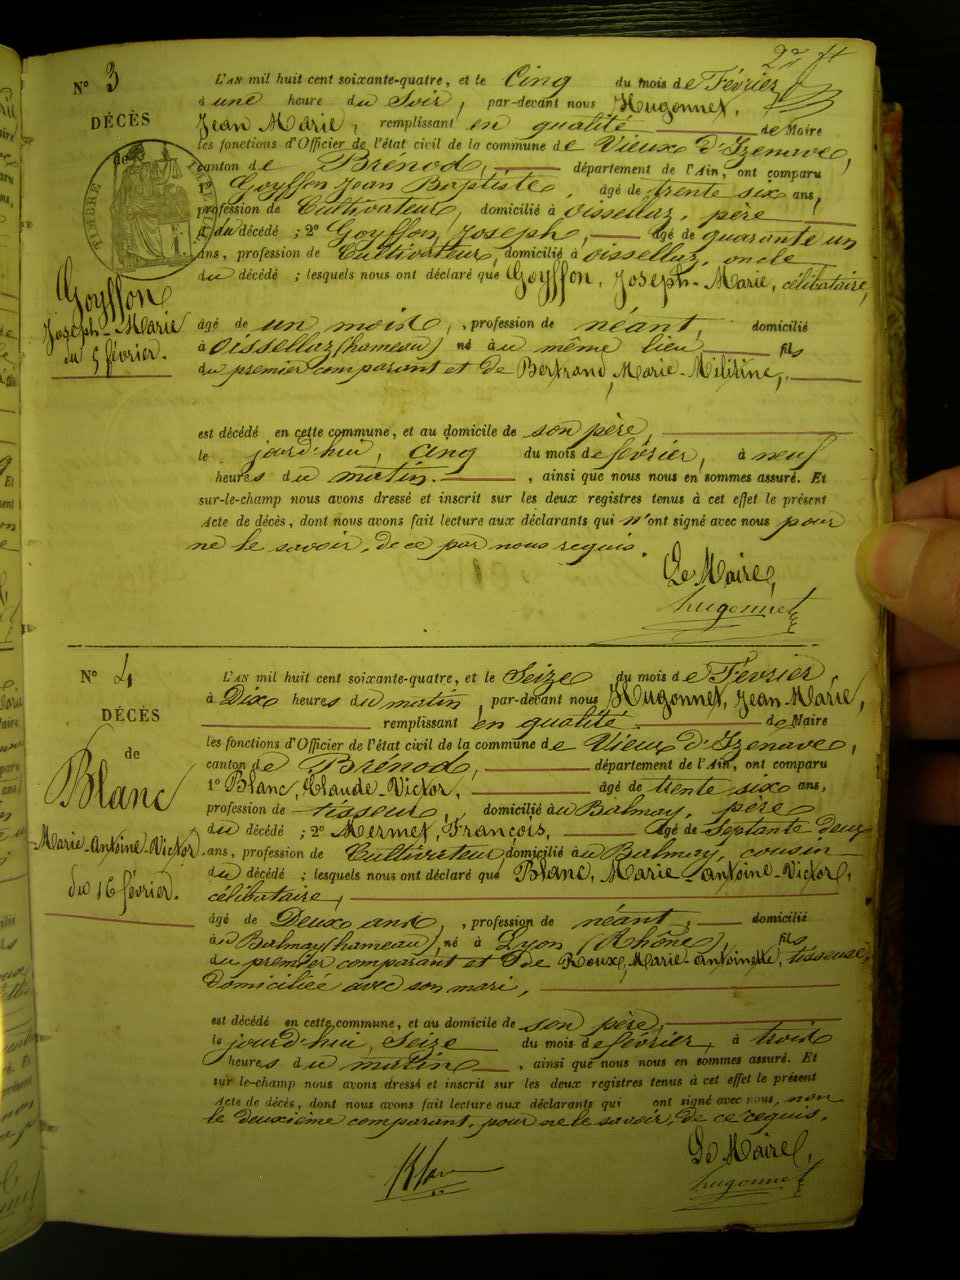 22 ft
N° 3
DÉCÈS
de
TIMBRE
Goyffon
Joseph-Marie
du 5 février.
L'AN mil huit cent soixante-quatre, et le Cinq du mois de Février
à une heure du Soir, par-devant nous Hugonnet,
Jean Marie, remplissant en qualité de Maire
les fonctions d'Officier de l'état civil de la commune de Vieux d'Izenave,
canton de Brénod, département de l'Ain, ont comparu
1° Goyffon Jean Baptiste, âgé de trente six ans,
profession de Cultivateur, domicilié à Oissellaz, père
du décédé ; 2° Goyffon Joseph, âgé de quarante un
ans, profession de Cultivateur, domicilié à Oissellaz, oncle
du décédé ; lesquels nous ont déclaré que Goyffon, Joseph-Marie, célibataire,
âgé de un mois, profession de néant, domicilié
à Oissellaz (hameau) né au même lieu fils
du premier comparant et de Bertrand, Marie-
est décédé en cette commune, et au domicile de son père
le jourd'hui, cinq du mois de février, à neuf
heures du matin. , ainsi que nous nous en sommes assuré. Et
sur-le-champ nous avons dressé et inscrit sur les deux registres tenus à cet effet le présent
Acte de décès, dont nous avons fait lecture aux déclarants qui n'ont signé avec nous pour
ne le savoir, de ce par nous requis.
Le Maire,
hugonnet
N° 4
DÉCÈS
de
Blanc
Marie-Antoine-Victor
du 16 février.
L'AN mil huit cent soixante-quatre, et le Seize du mois de Février,
à Dix heures du matin, par-devant nous Hugonnet, Jean Marie,
remplissant en qualité de Maire
les fonctions d'Officier de l'état civil de la commune de Vieux d'Izenave,
canton de Brénod, département de l'Ain, ont comparu
1° Blanc, Claude-Victor, âgé de trente six ans,
profession de tisseur, domicilié au Balmay, père
du décédé ; 2° Mermet, François, âgé de Septante deux
ans, profession de Cultivateur, domicilié au Balmay, cousin
du décédé ; lesquels nous ont déclaré que Blanc, Marie-Antoine-Victor,
célibataire,
âgé de Deux ans, profession de néant, domicilié
au Balmay (hameau), né à Lyon (Rhône), fils
du premier comparant et de Roux, Marie-Antoinette, tisseuse,
Domiciliée avec son mari,
est décédé en cette commune, et au domicile de son père,
le jourd'hui, Seize du mois de février, à trois
heures du matin , ainsi que nous nous en sommes assuré. Et
sur le-champ nous avons dressé et inscrit sur les deux registres tenus à cet effet le présent
Acte de décès, dont nous avons fait lecture aux déclarants qui ont signé avec nous, non
le deuxième comparant, pour ne le savoir, de ce requis.
Le Maire,
Blanc
hugonnet